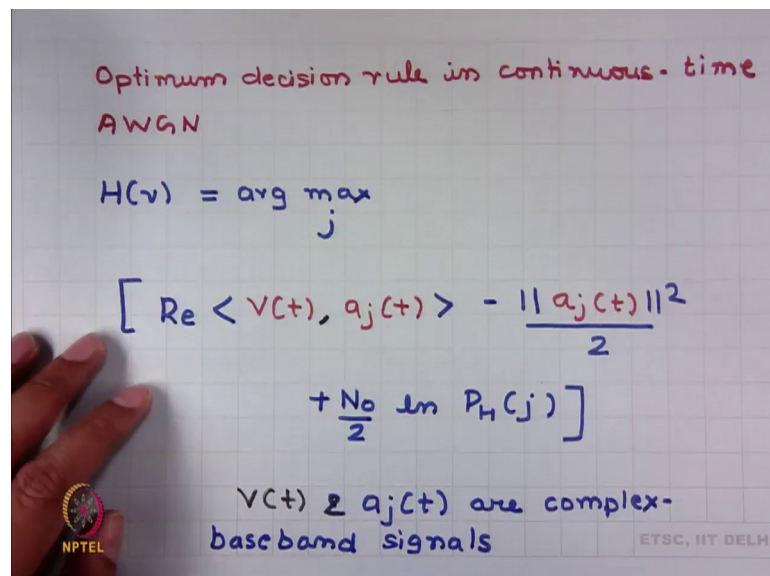 Optimum decision rule in continuous-time
AWGN
H(v) = arg max
j
[ Re < V(t), aj(t) > - || aj(t) ||²
2
+ No ln PH(j) ]
2
V(t) & aj(t) are complex-
baseband signals
NPTEL
ETSC, IIT DELH